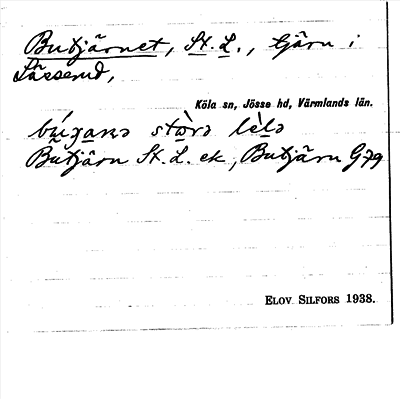 Butjärnet, St. L., tjärn i
Lässerud,
Köla sn, Jösse hd, Värmlands län.
stọ̀rə lèlə
Butjärn St. L. ek, Butjärn G79
ELOV SILFORS 1938.